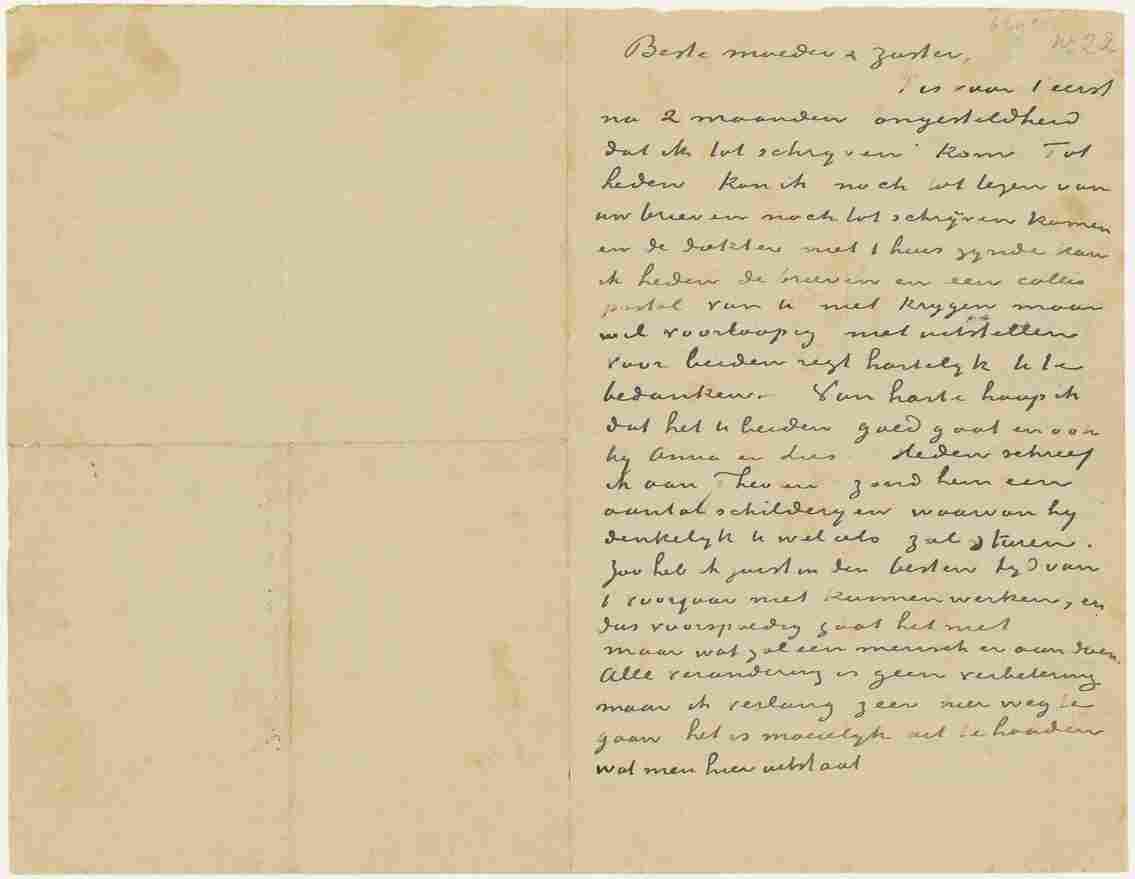 No 22
Beste moeder & zuster,
T is voor t eerst
na 2 maanden ongesteldheid
dat ik tot schrijven kom Tot
heden kon ik noch tot lezen van
uw brieven noch tot schrijven komen
en de dokter niet t huis zynde kan
ik heden de brieven en een collis
postal van U niet krygen maar
wil voorloopig niet uitstellen
voor beiden regt hartelyk U te
bedanken. Van harte hoop ik
dat het U beiden goed gaat en ook
by Anna en Lies Heden schreef
ik aan Theo en zond hem een
aantal schilderyen waarvan hy
denkelyk U wel als zal sturen.
Zoo heb ik juist in den besten tyd van
t voorjaar niet kunnen werken, en
dus voorspoedig gaat het niet
maar wat zal een mensch er aan doen.
Alle verandering is geen verbetering
maar ik verlang zeer hier weg te
gaan het is moeielyk uit te houden
wat men hier uitstaat